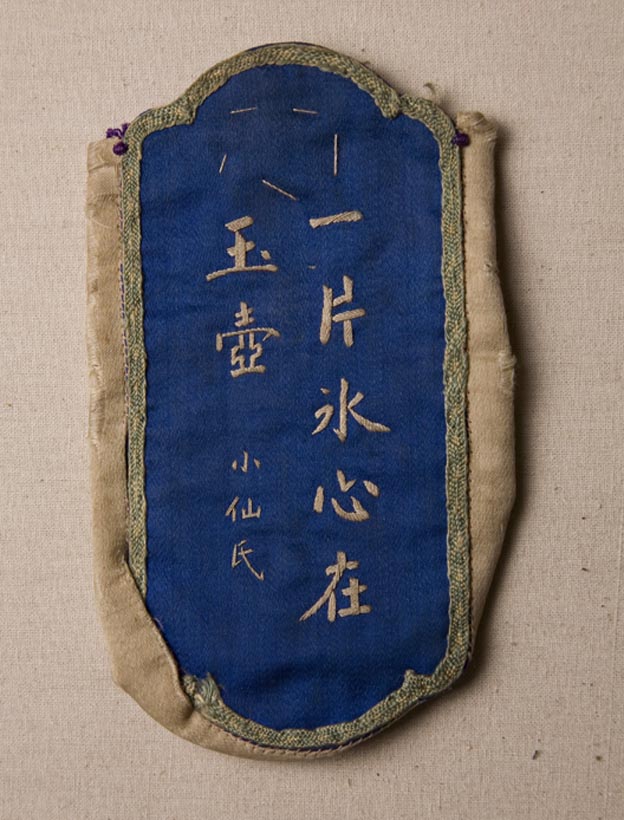 一片氷心在
玉壺
小仙氏